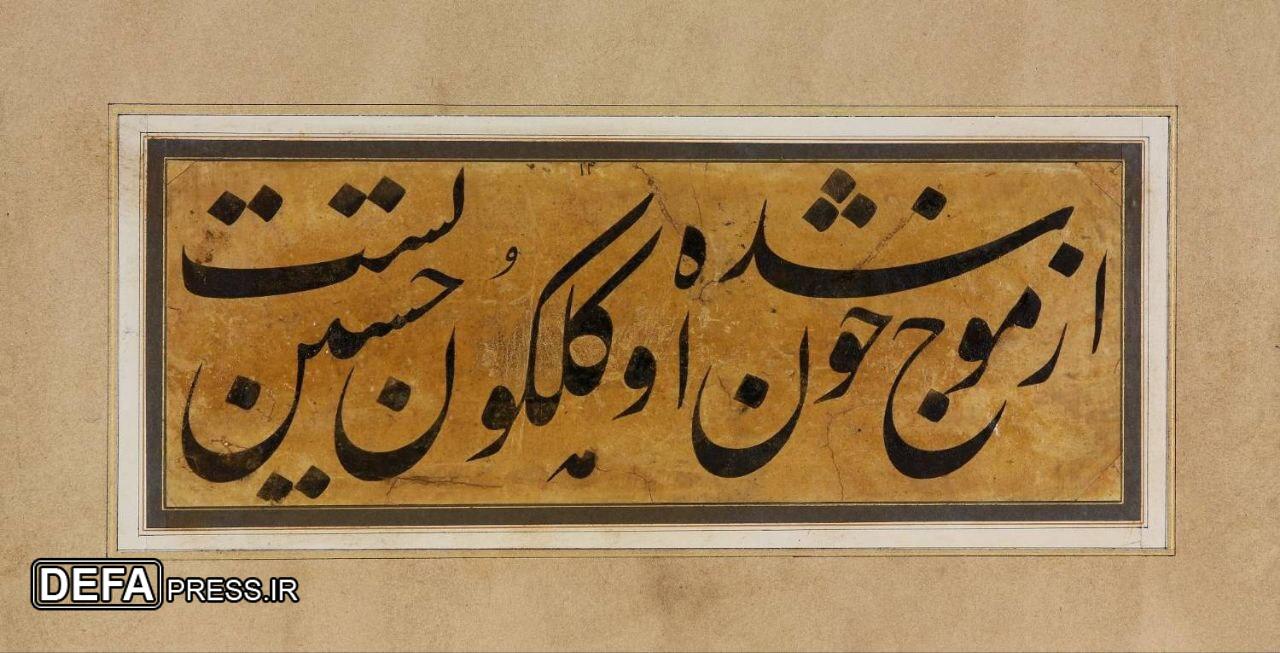 از موج خون او شده گلگون حسین تست
DEFA PRESS.IR